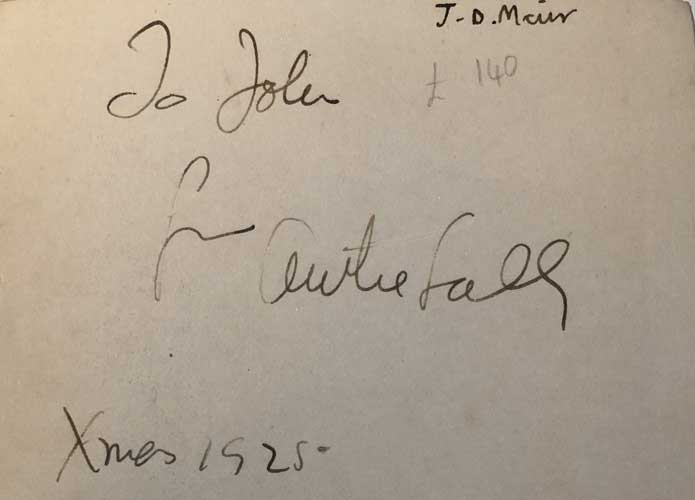 J-D. Muir
£ 140
To John
from Auntie Sally
Xmas 1925-